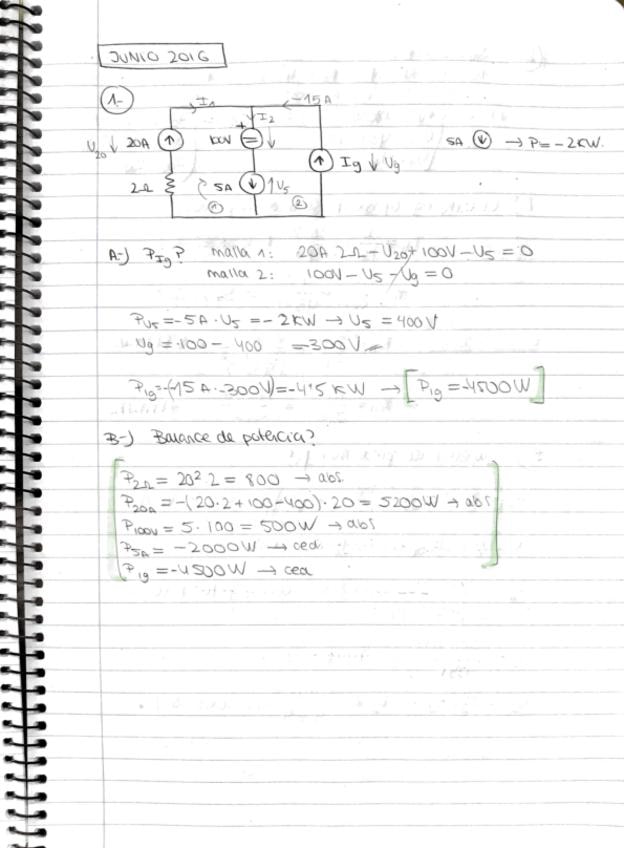 JUNIO 2016
1-
I1
-15A
I2
U20 20A
100V
Ig
Ug
2Ω
5A
U5
1
2
5A → P=-2KW.
A-) PIg? malla 1: 20A 2Ω - U20 + 100V - U5 = 0
malla 2: 100V - U5 - Ug = 0
PU5 = -5A · U5 = -2KW → U5 = 400V
Ug = 100 - 400 = -300V
PIg = -(15A · -300V) = -4'5 KW → [PIg = -4500W]
B-) Balance de potencia?
P2Ω = 20² 2 = 800 → abs.
P20A = -(20·2+100-400)·20 = 5200W → abs
P100V = 5·100 = 500W → abs
P5A = -2000W → ced.
PIg = -4500W → ced